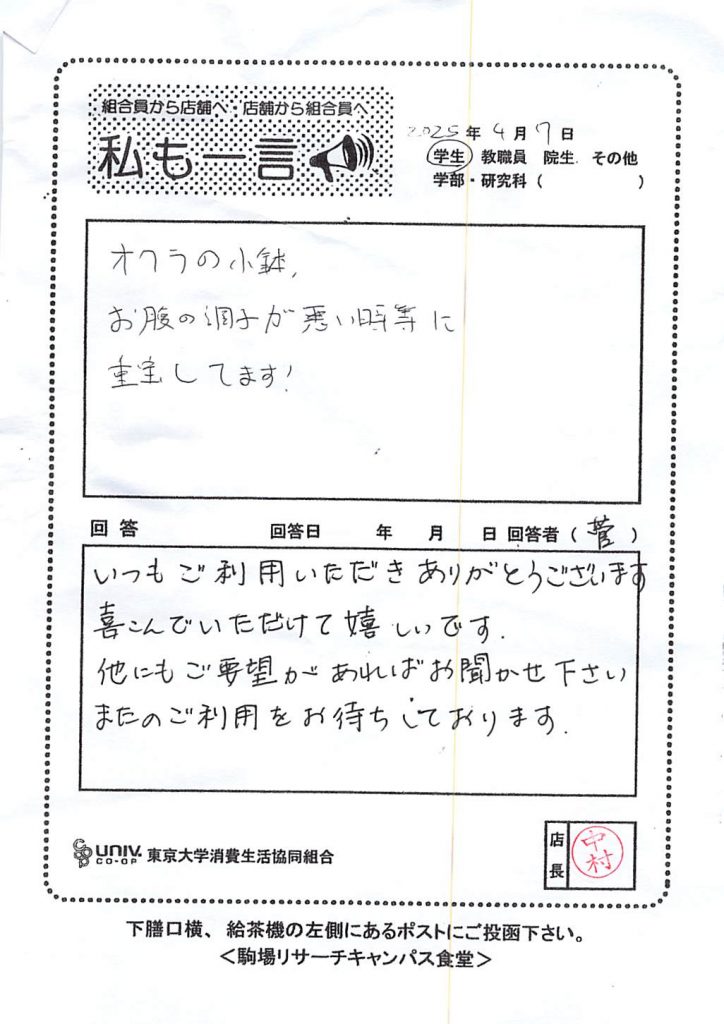 組合員から店舗へ・店舗から組合員へ
私も一言
2025年4月7日
学生 教職員 院生 その他
学部・研究科( )
オクラの小鉢、
お腹の調子が悪い時等に
重宝してます!
回答 回答日 年 月 日 回答者(菅)
いつもご利用いただきありがとうございます
喜こんでいただけて嬉しいです.
他にもご要望があればお聞かせ下さい
またのご利用をお待ちしております.
CO-OP UNIV. CO-OP 東京大学消費生活協同組合
店長 中村
下膳口横、給茶機の左側にあるポストにご投函下さい。
<駒場リサーチキャンパス食堂>